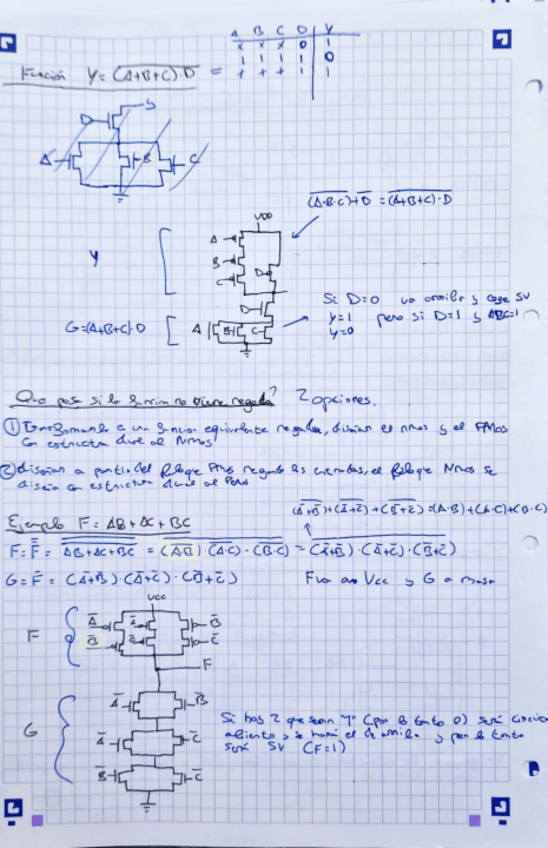 A B C D Y
x x x 0 1
1 1 1 1 0
Función Y = \overline{(A+B+C)·D} =
D Y
A B C
\overline{(A·B·C)}+\overline{D} = \overline{(A+B+C)·D}
VDD
A
B
C
D
Y
D
G=(A+B+C)·D
A B C
Si D=0 va arriba y coge 5V
Y=1 pero si D=1 y ABC=1
Y=0
Que pasa si la función no viene negada? 2 opciones.
① Transformando a una función equivalente negada, diseñar el nmos y el PMos
con estructura dual al Nmos
② diseñar a partir del Bloque Pmos negando las entradas, el Bloque Nmos se
diseña con estructura dual al Pmos
Ejemplo F = AB + AC + BC
\overline{(\bar{A}+\bar{B})}+\overline{(\bar{A}+\bar{C})}+\overline{(\bar{B}+\bar{C})}=(A·B)+(A·C)+(B·C)
F = \bar{\bar{F}} = \overline{\overline{AB+AC+BC}} = \overline{\overline{(AB)}·\overline{(A·C)}·\overline{(B·C)}} = \overline{(\bar{A}+\bar{B})·(\bar{A}+\bar{C})·(\bar{B}+\bar{C})}
G = \bar{F} = (\bar{A}+\bar{B})·(\bar{A}+\bar{C})·(\bar{B}+\bar{C}) F va a Vcc y G a masa
Vcc
F
\bar{A} \bar{A} \bar{B}
\bar{B} \bar{C} \bar{C}
F
G
\bar{A} \bar{B}
\bar{A} \bar{C}
\bar{B} \bar{C}
Si hay 2 que sean "1" (por lo tanto 0) será circuito
abierto y se hará el de arriba y por lo tanto
será 5V (F=1)